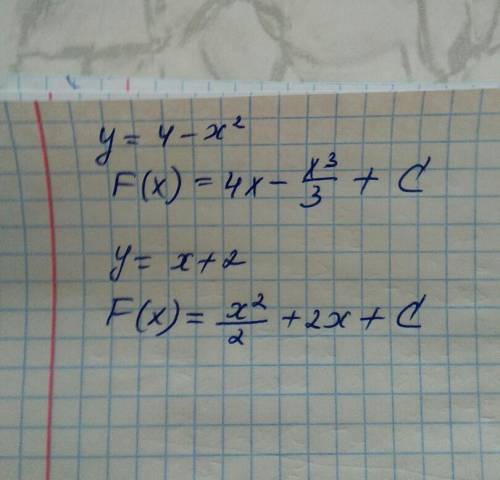 y = 4 - x²
F(x) = 4x - x³/3 + C
y = x + 2
F(x) = x²/2 + 2x + C